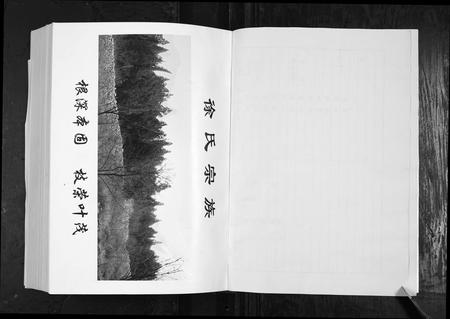 徐氏宗族
根深本固 枝荣叶茂